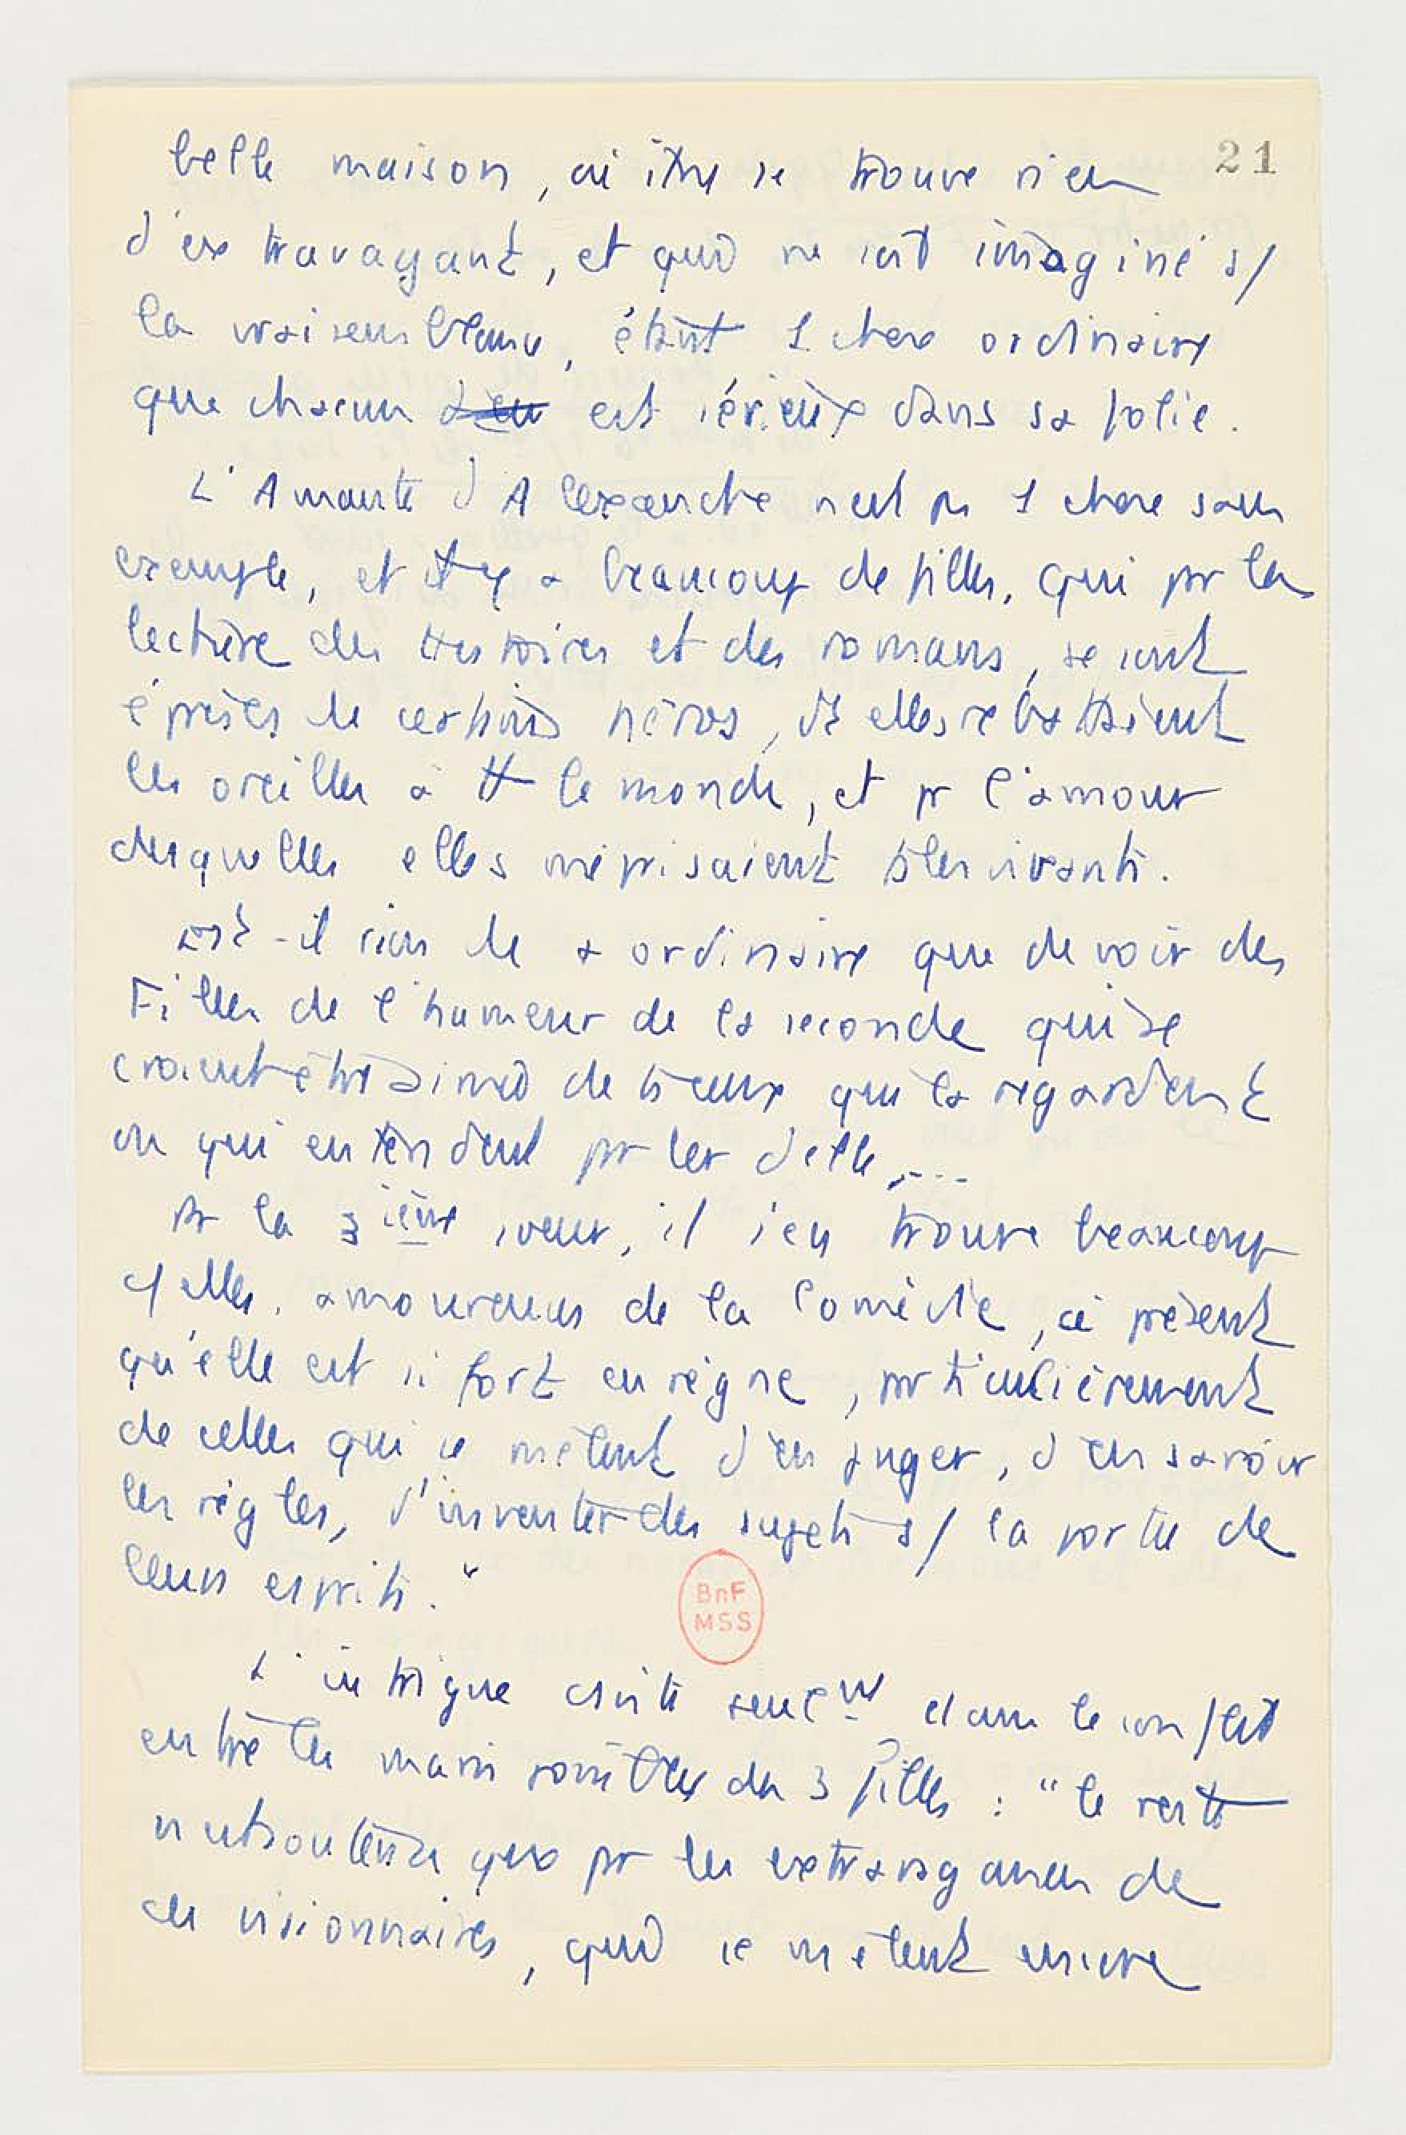 21
belle maison, où il ne se trouve rien
d'extravagant, et qui ne soit imaginé s/
la vraisemblance, étant 1 chose ordinaire
que chacun est sérieux dans sa folie.
L'Amante d'Alexandre n'est pas 1 chose sans
exemple, et il y a beaucoup de filles, qui par la
lecture des Histoires et des romans, se sont
éprises de certains héros, dt elles rebattaient
les oreilles à tt le monde, et pr l'amour
desquelles elles méprisaient ts les vivants.
Est-il rien de + ordinaire que de voir des
Filles de l'humeur de la seconde qui se
croient être aimées de ts ceux qui la regardent
ou qui entendent parler d'elle,...
Pr la 3ième soeur, il s'en trouve beaucoup
d'elles, amoureuses de la Comédie, à présent
qu'elle est si fort en règne, particulièrement
de celles qui se mêlent d'en juger, d'en savoir
les règles, d'inventer des sujets s/ la portée de
leurs esprits."
BnF
MSS
L'intrigue seulnt dans le conflit
entre les maris possibles des 3 filles : "le reste
n'est soutenu que par les extravagances de
ces visionnaires, qui se mêlent encore